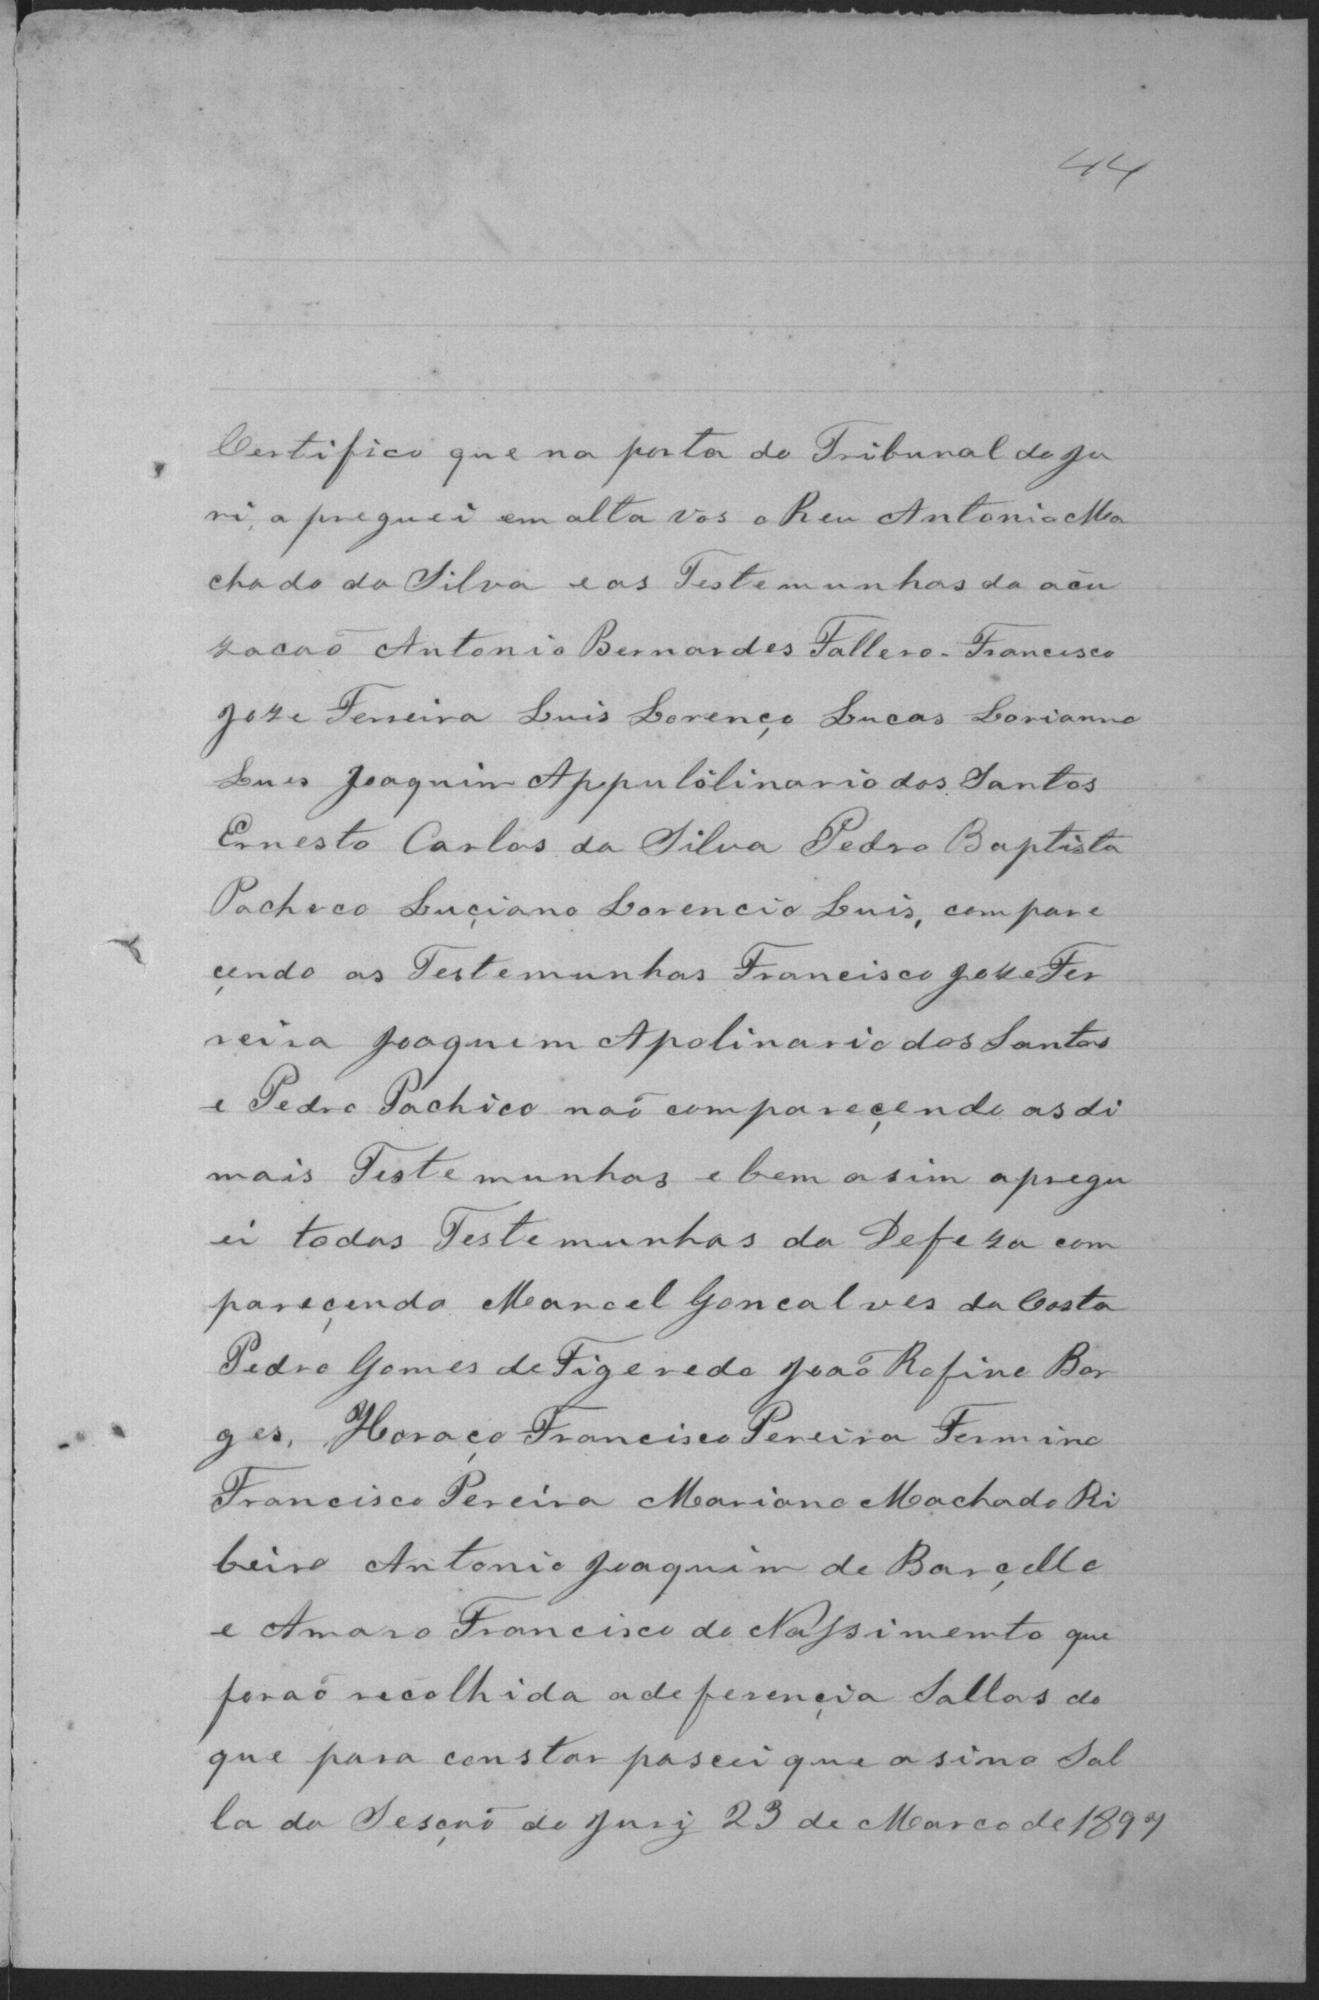 44
Certifico que na porta do Tribunal do ju
ri, a preguei em alta vos o Reu Antonio Ma
chado da Silva e as Testemunhas da acu
zacaõ Antonio Bernardes Fallero - Francisco
joze Ferreira Luis Lorenço Lucas Lorianno
Lues Joaquim Appulolinario dos Santos
Ernesto Carlos da Silva Pedro Baptista
Pacheco Luçiano Lorencio Luis, compare
çendo as Testemunhas Francisco joze Fer
reira Joaquem Apolinario dos Santos
e Pedro Pachico naõ compareçendo as di
mais Testemunhas e bem asim apregu
ei todas Testemunhas da Defeza com
pareçendo Manoel Goncalves da Costa
Pedro Gomes de Figeredo joaõ Rofino Bor
ges, Horaço Francisco Pereira Fermino
Francisco Pereira Mariano Machado Ri
beiro Antonio Joaquim de Barçello
e Amaro Francisco do Nassimemto que
foraõ recolhida adeferençia Sallas do
que para constar pascei que asino Sal
la da Sesçaõ do Jury 23 de Marco de 1897